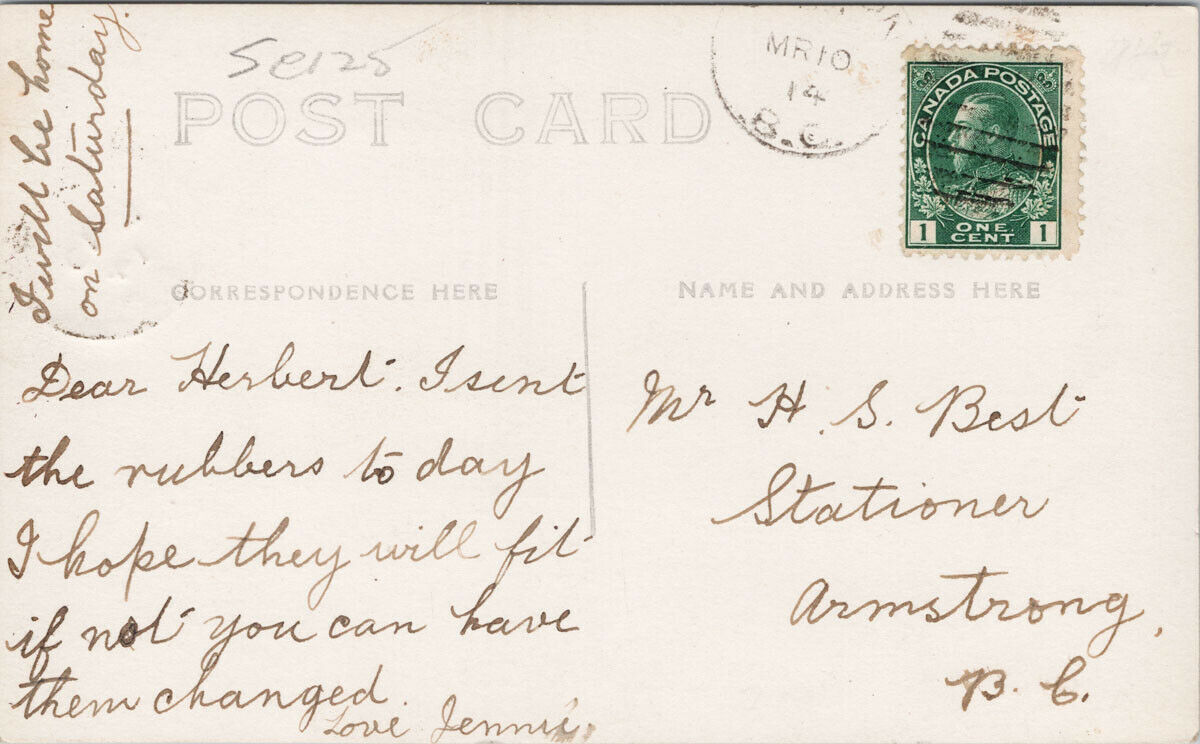 I will be home
on Saturday.
Se125
POST CARD
MR 10
14
B.C.
CANADA POSTAGE
1 ONE CENT 1
CORRESPONDENCE HERE
NAME AND ADDRESS HERE
Dear Herbert. I sent
the rubbers to day
I hope they will fit
if not you can have
them changed.
Love Jennie.
Mr H. S. Best
Stationer
Armstrong,
B. C.